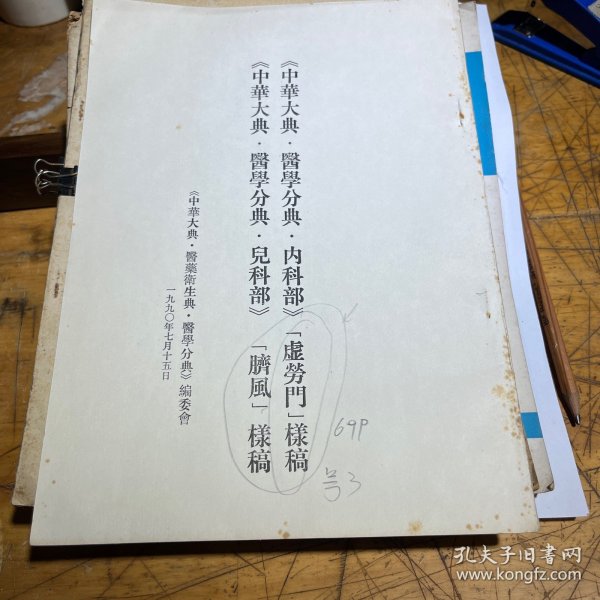 《中華大典·醫學分典·内科部》「虛勞門」樣稿
《中華大典·醫學分典·兒科部》「臍風」樣稿
《中華大典·醫藥衛生典·醫學分典》編委會
一九九〇年七月十五日
69P
号3
孔夫子旧书网
www.kongfz.com